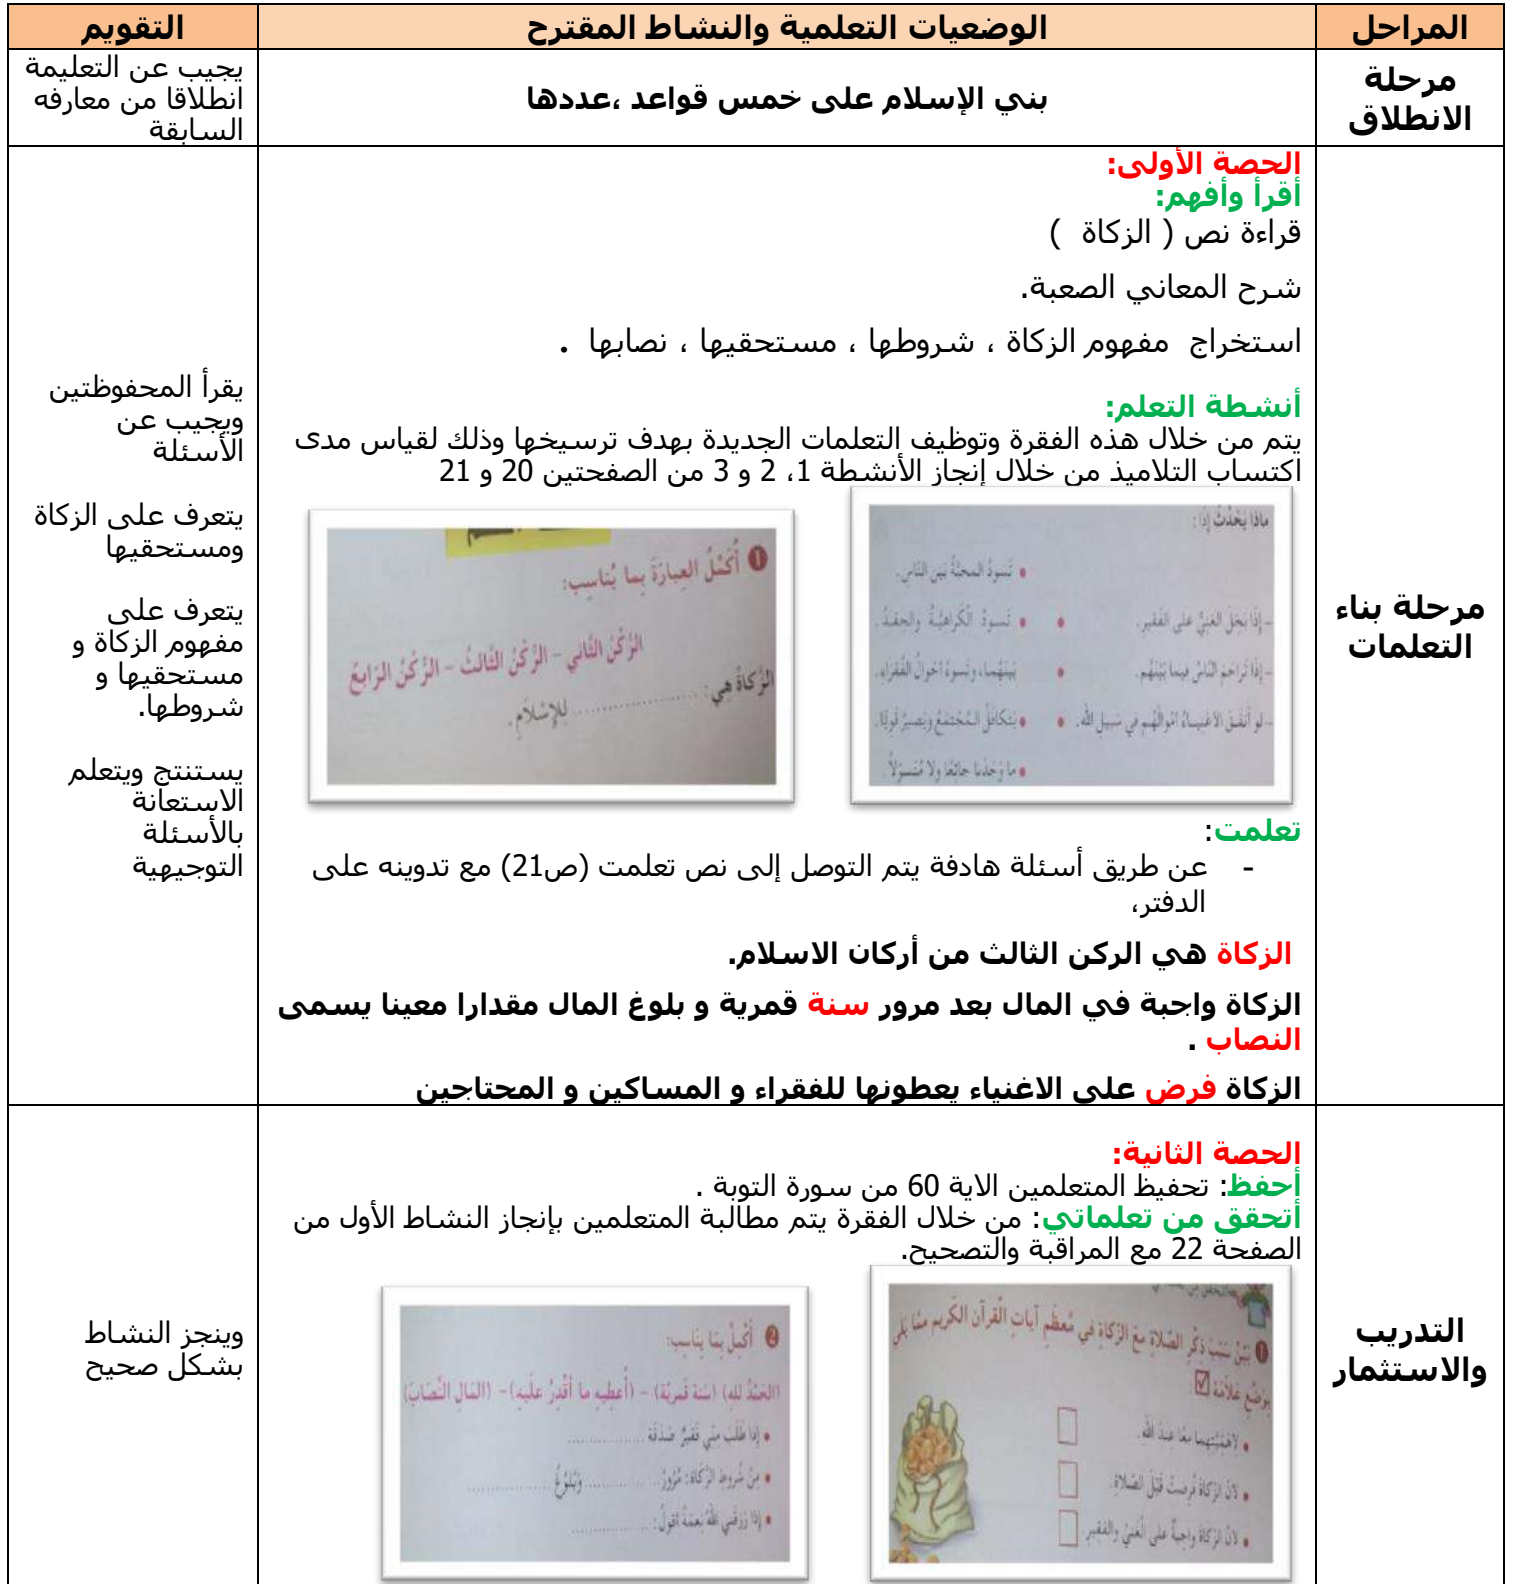 المراحل
الوضعيات التعلمية والنشاط المقترح
التقويم
مرحلة
الانطلاق
بني الإسلام على خمس قواعد ،عددها
يجيب عن التعليمة
انطلاقا من معارفه
السابقة
مرحلة بناء
التعلمات
الحصة الأولى:
أقرأ وأفهم:
قراءة نص ( الزكاة )
شرح المعاني الصعبة.
استخراج مفهوم الزكاة ، شروطها ، مستحقيها ، نصابها .
أنشطة التعلم:
يتم من خلال هذه الفقرة وتوظيف التعلمات الجديدة بهدف ترسيخها وذلك لقياس مدى
اكتساب التلاميذ من خلال إنجاز الأنشطة 1، 2 و 3 من الصفحتين 20 و 21
ماذا يَحْدُثُ إذا:
• تَسودُ المحبَّةُ بَين النّاس.
- إذا بَخِلَ الغَنِيُّ على الفَقير. •
• تَسودُ الكَراهِيَّةُ والحِقدُ
بَيْنَهُما، وتَسوءُ أحوالُ الفُقَراءِ.
- إذا تَراحَمَ النّاسُ فيما بَيْنَهُم. •
- لو أنْفَقَ الأغنِيـاءُ أمْوالَهُـم في سَبيلِ الله. •
• يَتكافَلُ المُجْتَمَعُ ويَصيرُ قَوِيًّا.
• ما وَجَدْنا جائِعًا ولا مُتَسوّلاً.
1 أُكَمِّلُ العِبارَةَ بِما يُناسِب:
الرُّكْنُ الثّاني – الرُّكْنُ الثّالثُ – الرُّكْنُ الرّابِعُ
الزَّكاةُ هِي: .................... لِلإسْلاَمِ.
تعلمت:
- عن طريق أسئلة هادفة يتم التوصل إلى نص تعلمت (ص21) مع تدوينه على
الدفتر،
الزكاة هي الركن الثالث من أركان الاسلام.
الزكاة واجبة في المال بعد مرور سنة قمرية و بلوغ المال مقدارا معينا يسمى
النصاب .
الزكاة فرض على الاغنياء يعطونها للفقراء و المساكين و المحتاجين
يقرأ المحفوظتين
ويجيب عن
الأسئلة
يتعرف على الزكاة
ومستحقيها
يتعرف على
مفهوم الزكاة و
مستحقيها و
شروطها.
يستنتج ويتعلم
الاستعانة
بالأسئلة
التوجيهية
التدريب
والاستثمار
الحصة الثانية:
أحفظ: تحفيظ المتعلمين الاية 60 من سورة التوبة .
أتحقق من تعلماتي: من خلال الفقرة يتم مطالبة المتعلمين بإنجاز النشاط الأول من
الصفحة 22 مع المراقبة والتصحيح.
1 سَبَبَ ذِكْرِ الصَّلاةِ معَ الزّكاةِ في مُعظَمِ آياتِ القُرآن الكَريم ممّا يَلي
بِوَضْعِ عَلاَمَة
• لأهَمِّيَّتِهِما مَعًا عِندَ الله.
• لأنّ الزّكاةَ فُرِضتْ قَبْلَ الصّلاةِ.
• لأنّ الزّكاةَ واجِبَةٌ على الْغَنيّ والفَقيرِ.
2 أُكَمِلُ بِمَا يُناسِب:
(الحَمْدُ للهِ) (سَنَة قَمرِيَّة) – (أُعطِيهِ ما أقْدِرُ علَيهِ) – (المَال النِّصَابَ)
• إذا طَلَبَ مِنّي فَقيرٌ صَدَقَة ................
• مِنْ شُروطِ الزّكاة: مُرُورُ................ وَبُلُوغُ................
• إذا رَزقَني اللهُ نِعمَة أقولُ: ................
وينجز النشاط
بشكل صحيح